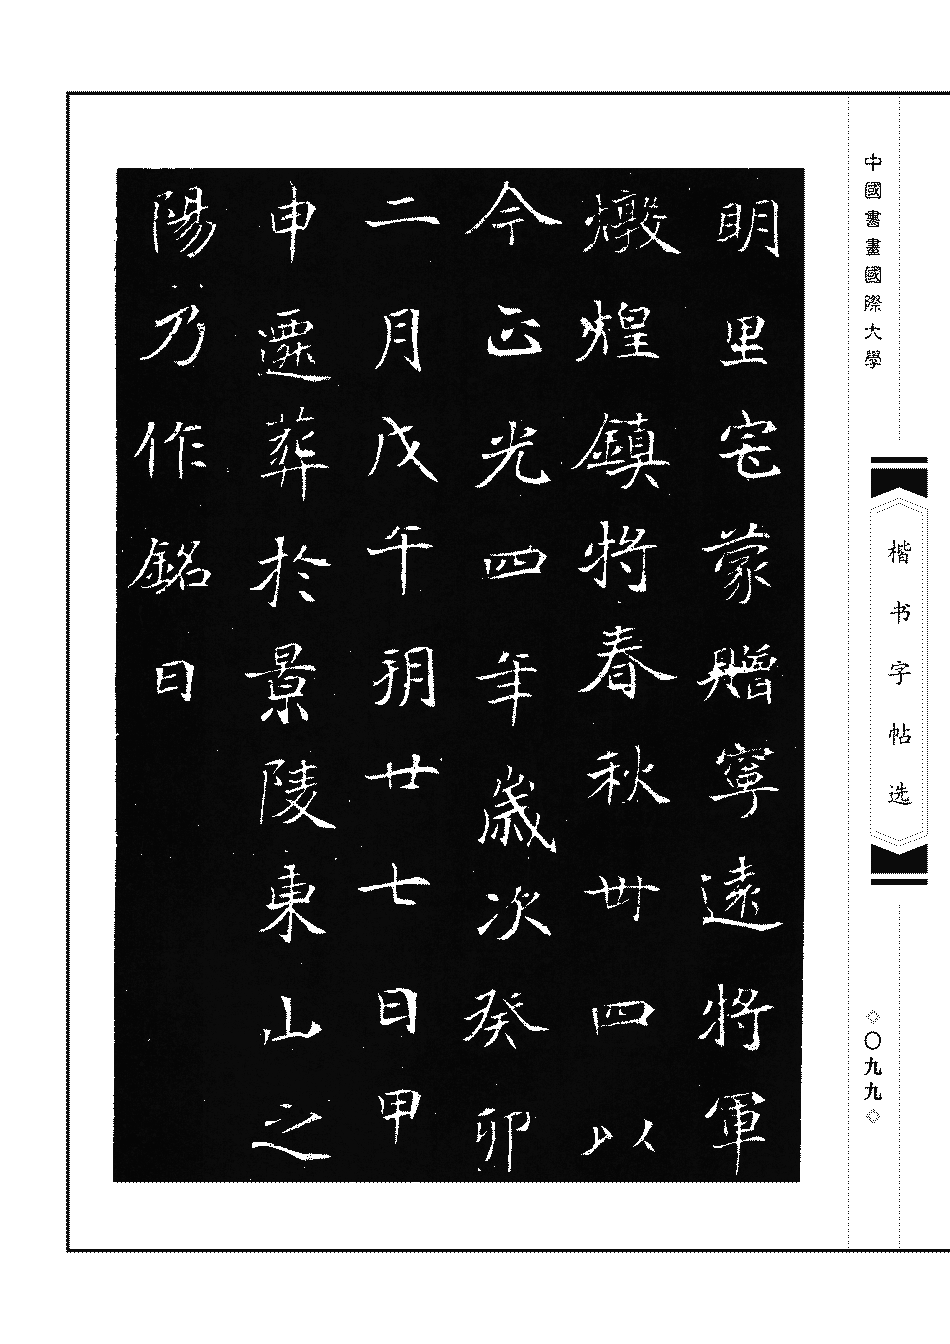 明里宅蒙贈寧遠將軍
燉煌鎮將春秋卌四以
今正光四年歲次癸卯
二月戊午玥廿七日甲
申遷葬於景陵東山之
陽乃作銘曰
中國書畫國際大學
楷书字帖选
〇九九